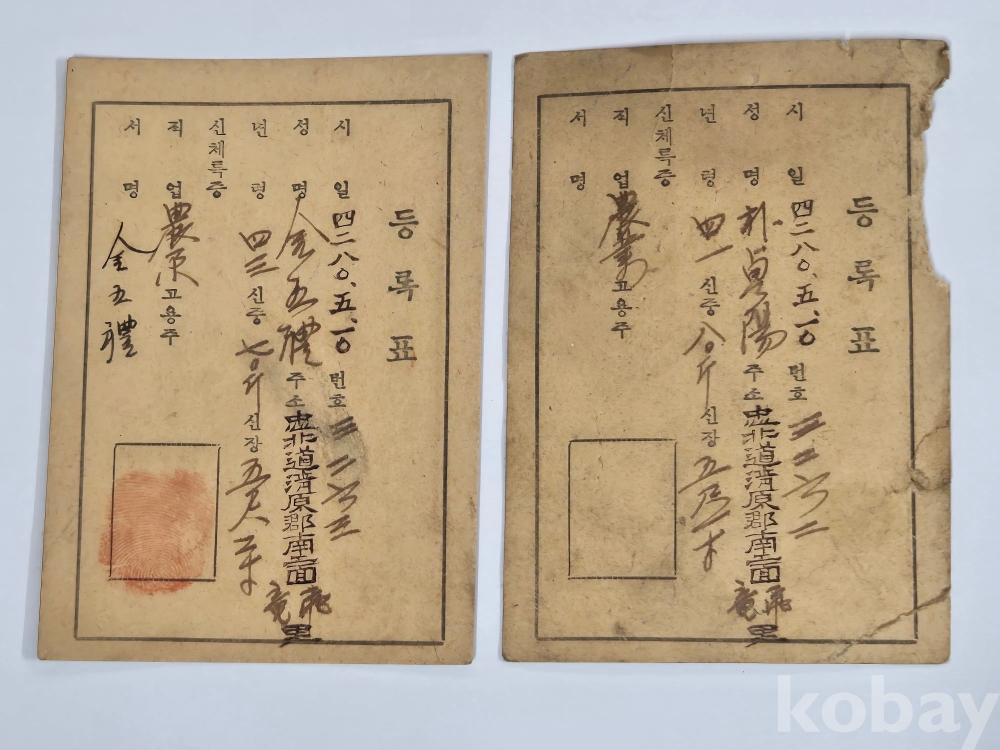 등록표
시일 四二八〇.五.一〇 번호 三二六三
성명 金五禮 주소 忠北道淸原郡南二面 里
년령 四三 신중 七〇斤 신장 五尺二寸
신체특증
직업 農 고용주
서명 金五禮
등록표
시일 四二八〇.五.一〇 번호 三二六二
성명 朴貞陽 주소 忠北道淸原郡南二面 里
년령 四一 신중 八〇斤 신장 五尺一寸
신체특증
직업 農業 고용주
서명
kobay